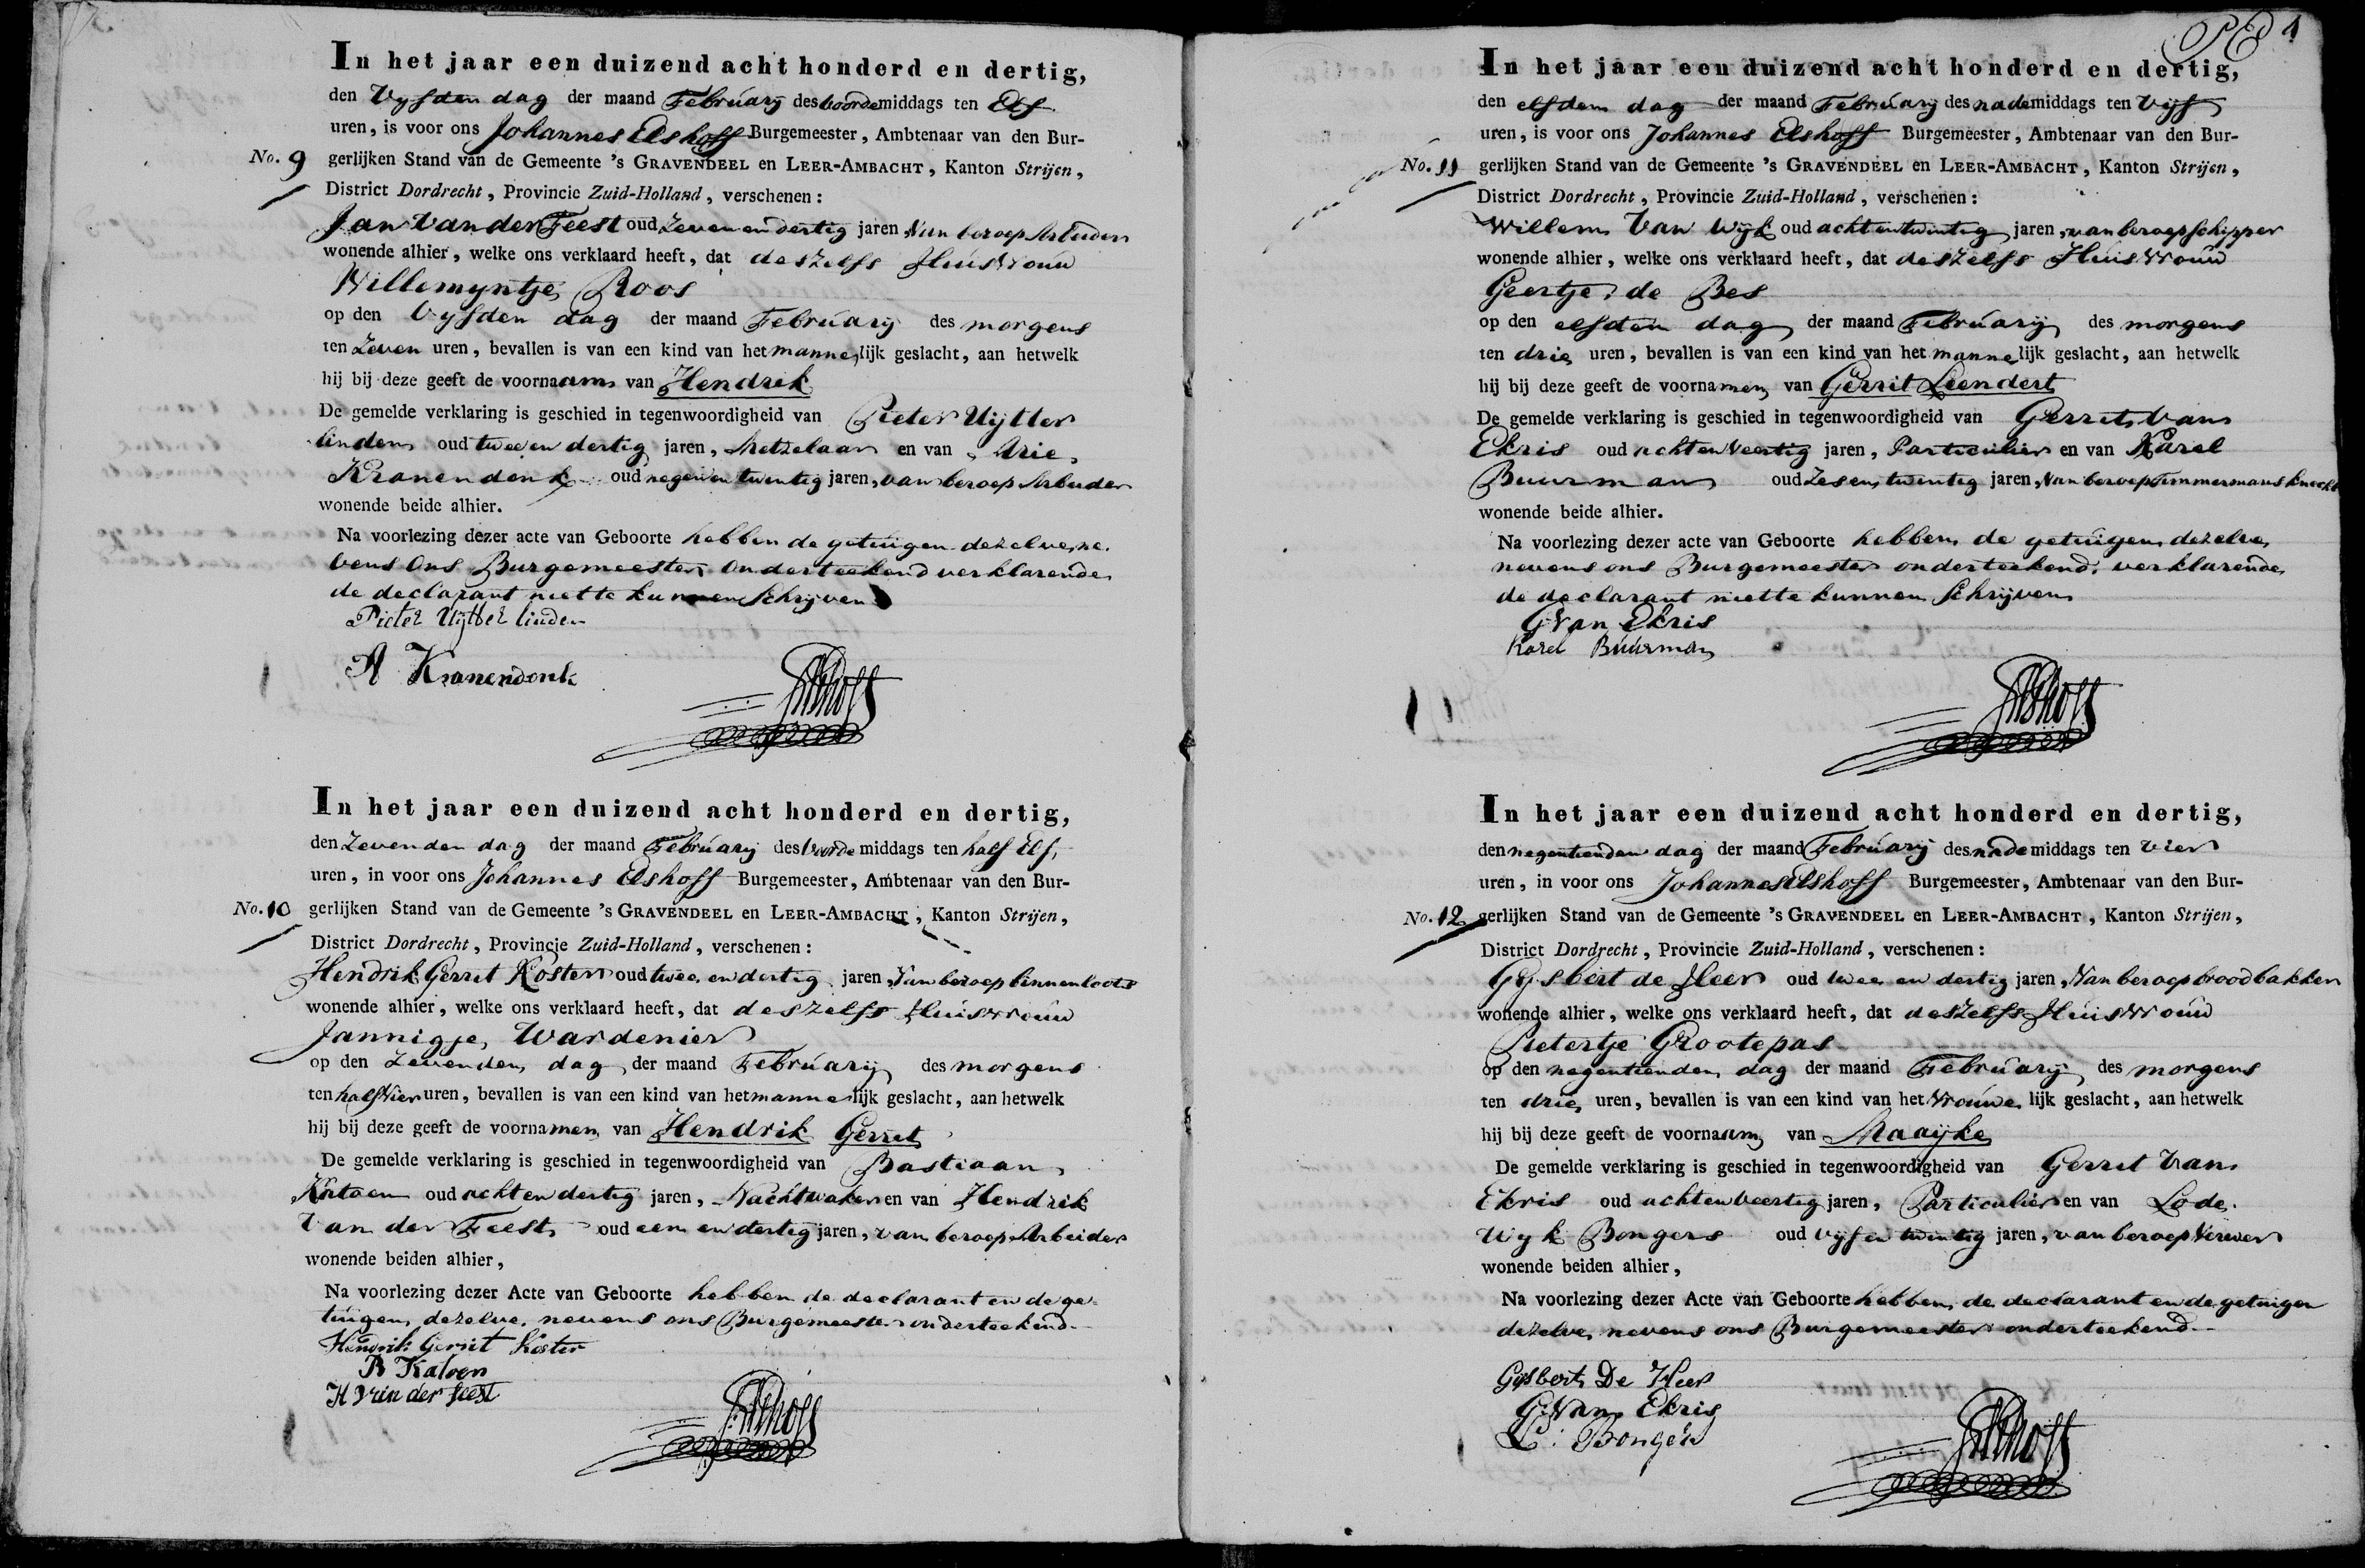 In het jaar een duizend acht honderd en dertig,
den Vyfden dag der maand February des voordemiddags ten Elf
uren, is voor ons Johannes Elshoff Burgemeester, Ambtenaar van den Bur-
No. 9 gerlijken Stand van de Gemeente 's GRAVENDEEL en LEER-AMBACHT, Kanton Strijen,
District Dordrecht, Provincie Zuid-Holland, verschenen:
Jan van der Feest oud Zeven en dertig jaren, van beroep Arbeider
wonende alhier, welke ons verklaard heeft, dat deszelfs Huisvrouw
Willemyntje Roos
op den Vyfden dag der maand February des morgens
ten Zeven uren, bevallen is van een kind van het mannelijk geslacht, aan hetwelk
hij bij deze geeft de voornaam van Hendrik
De gemelde verklaring is geschied in tegenwoordigheid van Pieter Uijtter
linden oud twee en dertig jaren, Metzelaar en van Arie
Kranendonk oud negen en twintig jaren, van beroep Arbeider
wonende beide alhier.
Na voorlezing dezer acte van Geboorte hebben de getuigen dezelve, ne-
vens Ons Burgemeester Onderteekend verklarende
de declarant niet te kunnen Schrijven
Pieter Uijtter linden
A Kranendonk
Elshoff
In het jaar een duizend acht honderd en dertig,
den Zevenden dag der maand February des voordemiddags ten half Elf,
uren, in voor ons Johannes Elshoff Burgemeester, Ambtenaar van den Bur-
No. 10 gerlijken Stand van de Gemeente 's GRAVENDEEL en LEER-AMBACHT, Kanton Strijen,
District Dordrecht, Provincie Zuid-Holland, verschenen:
Hendrik Gerrit Koster oud twee en dertig jaren, van beroep binnenloots
wonende alhier, welke ons verklaard heeft, dat deszelfs Huisvrouw
Jannigje Wardenier
op den Zevenden dag der maand February des morgens
ten half vier uren, bevallen is van een kind van het mannelijk geslacht, aan hetwelk
hij bij deze geeft de voornamen van Hendrik Gerrit
De gemelde verklaring is geschied in tegenwoordigheid van Bastiaan
Katoen oud acht en dertig jaren, Nachtwaker en van Hendrik
van der Feest oud een en dertig jaren, van beroep Arbeider
wonende beiden alhier,
Na voorlezing dezer Acte van Geboorte hebben de declarant en de ge-
tuigen dezelve nevens ons Burgemeester onderteekend.
Hendrik Gerrit Koster
B Katoen
H van der feest
Elshoff
4
In het jaar een duizend acht honderd en dertig,
den elfden dag der maand February des nademiddags ten Vijf
uren, is voor ons Johannes Elshoff Burgemeester, Ambtenaar van den Bur-
No. 11 gerlijken Stand van de Gemeente 's GRAVENDEEL en LEER-AMBACHT, Kanton Strijen,
District Dordrecht, Provincie Zuid-Holland, verschenen:
Willem Van Wijk oud acht en twintig jaren, van beroep schipper
wonende alhier, welke ons verklaard heeft, dat deszelfs Huisvrouw
Geertje de Bes
op den elfden dag der maand February des morgens
ten drie uren, bevallen is van een kind van het mannelijk geslacht, aan hetwelk
hij bij deze geeft de voornamen van Gerrit Leendert
De gemelde verklaring is geschied in tegenwoordigheid van Gerrit van
Ekris oud acht en Veertig jaren, Particulier en van Karel
Buurman oud Zes en twintig jaren, van beroep Timmermans knecht
wonende beide alhier.
Na voorlezing dezer acte van Geboorte hebben de getuigen dezelve
nevens ons Burgemeester onderteekend, verklarende
de declarant niet te kunnen Schrijven
G van Ekris
Karel Buurman
Elshoff
In het jaar een duizend acht honderd en dertig,
den negentienden dag der maand February des nademiddags ten vier
uren, in voor ons Johannes Elshoff Burgemeester, Ambtenaar van den Bur-
No. 12 gerlijken Stand van de Gemeente 's GRAVENDEEL en LEER-AMBACHT, Kanton Strijen,
District Dordrecht, Provincie Zuid-Holland, verschenen:
Gysbert de Heer oud twee en dertig jaren, Van beroep broodbakker
wonende alhier, welke ons verklaard heeft, dat deszelfs Huisvrouw
Pietertje Grootepas
op den negentienden dag der maand February des morgens
ten drie uren, bevallen is van een kind van het Vrouwelijk geslacht, aan hetwelk
hij bij deze geeft de voornaam van Maayke
De gemelde verklaring is geschied in tegenwoordigheid van Gerrit Van
Ekris oud acht en veertig jaren, Particulier en van Lode-
wyk Bongers oud vijf en twintig jaren, van beroep Verwer
wonende beiden alhier,
Na voorlezing dezer Acte van Geboorte hebben de declarant en de getuigen
dezelve nevens ons Burgemeester onderteekend.
Gysbert De Heer
G. van Ekris
L: Bongers
Elshoff